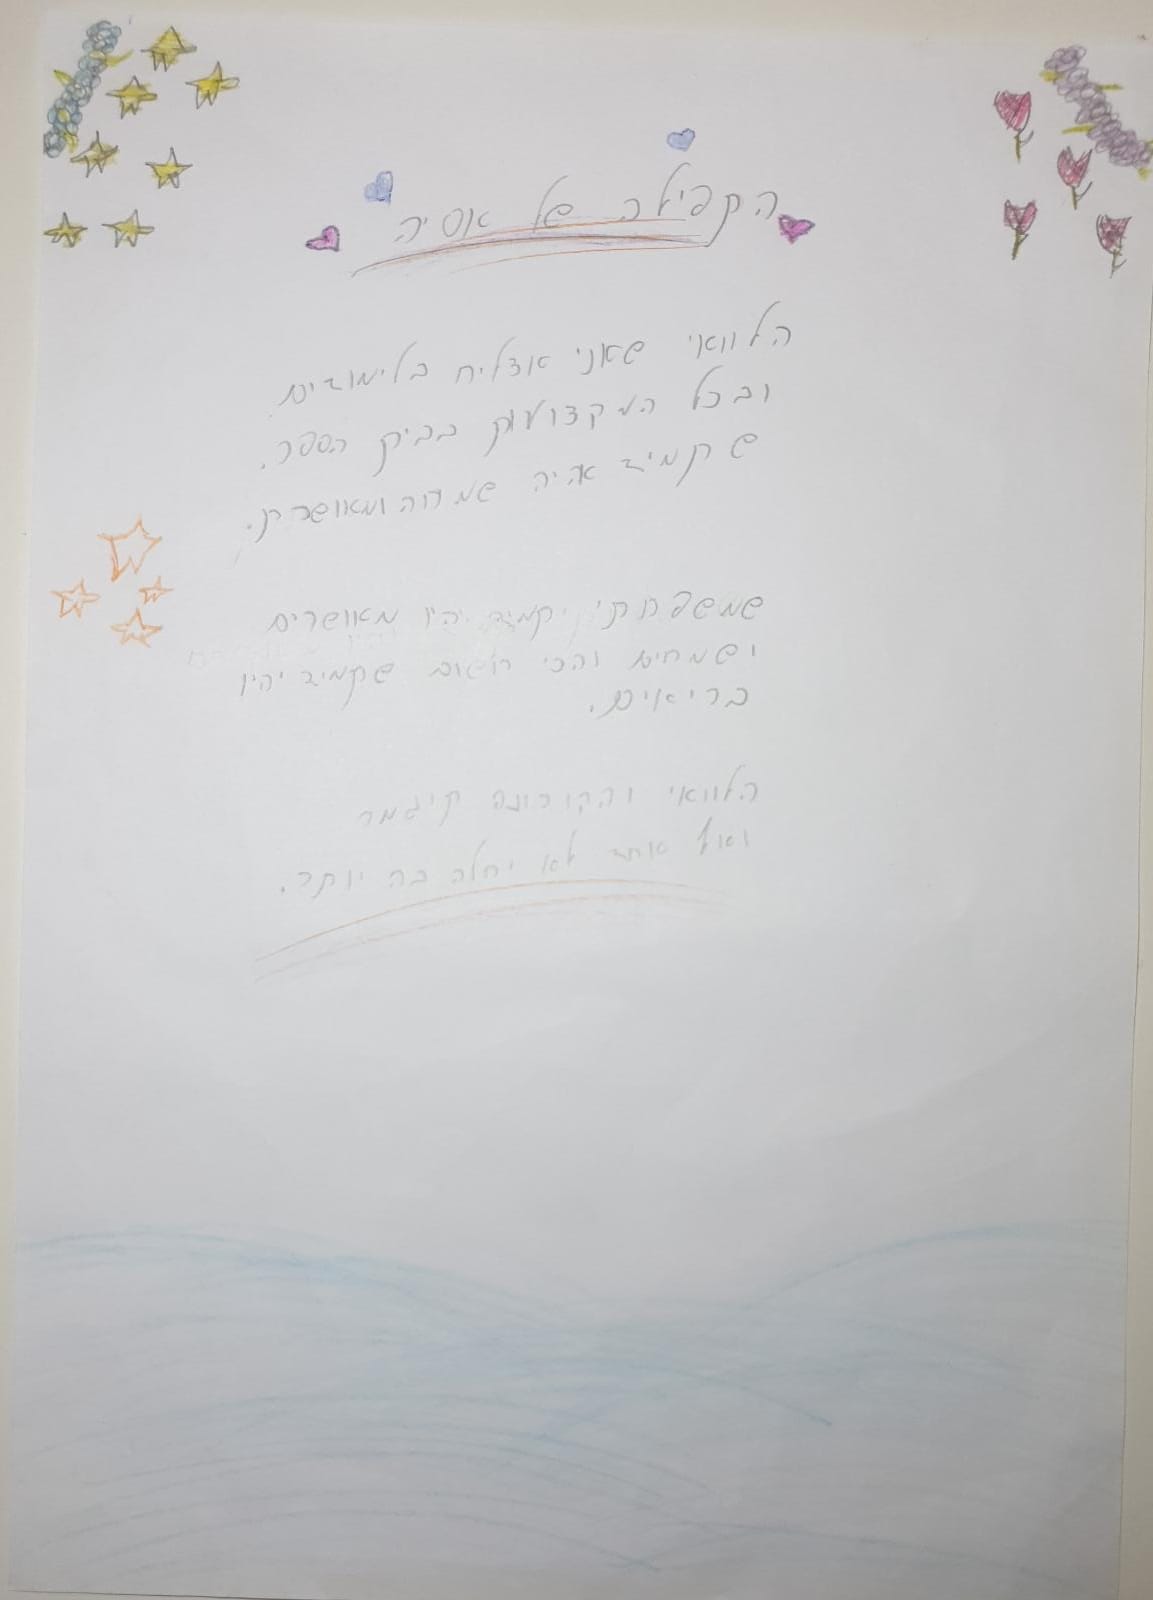 התפילה של אסיה
הלוואי שאני אצליח בלימודים
ובכל המקצועות בבית הספר.
שתמיד אהיה שמחה ומאושרת.
שמשפחתי תמיד יהיו מאושרים
ושמחים והכי חשוב שתמיד יהיו
בריאים.
הלוואי והקורונה תיגמר
ואף אחד לא יחלה בה יותר.